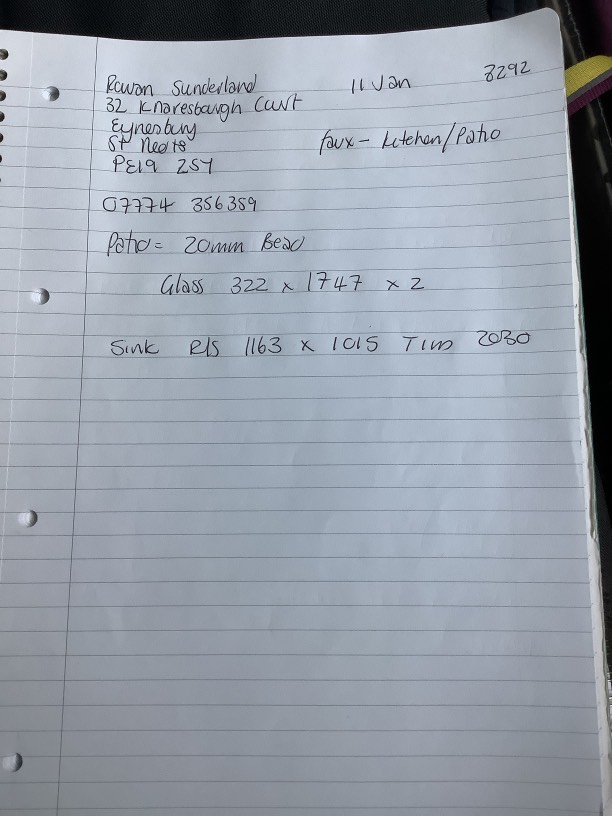 Rowan Sunderland 11 Jan 8292
32 Knaresbaugh Court
Eynesbury
St Neots faux - kitchen/Patio
PE19 2SY
07774 356359
Patio = 20mm Bead
Glass 322 x 1747 x 2
Sink R/S 1163 x 1015 2030